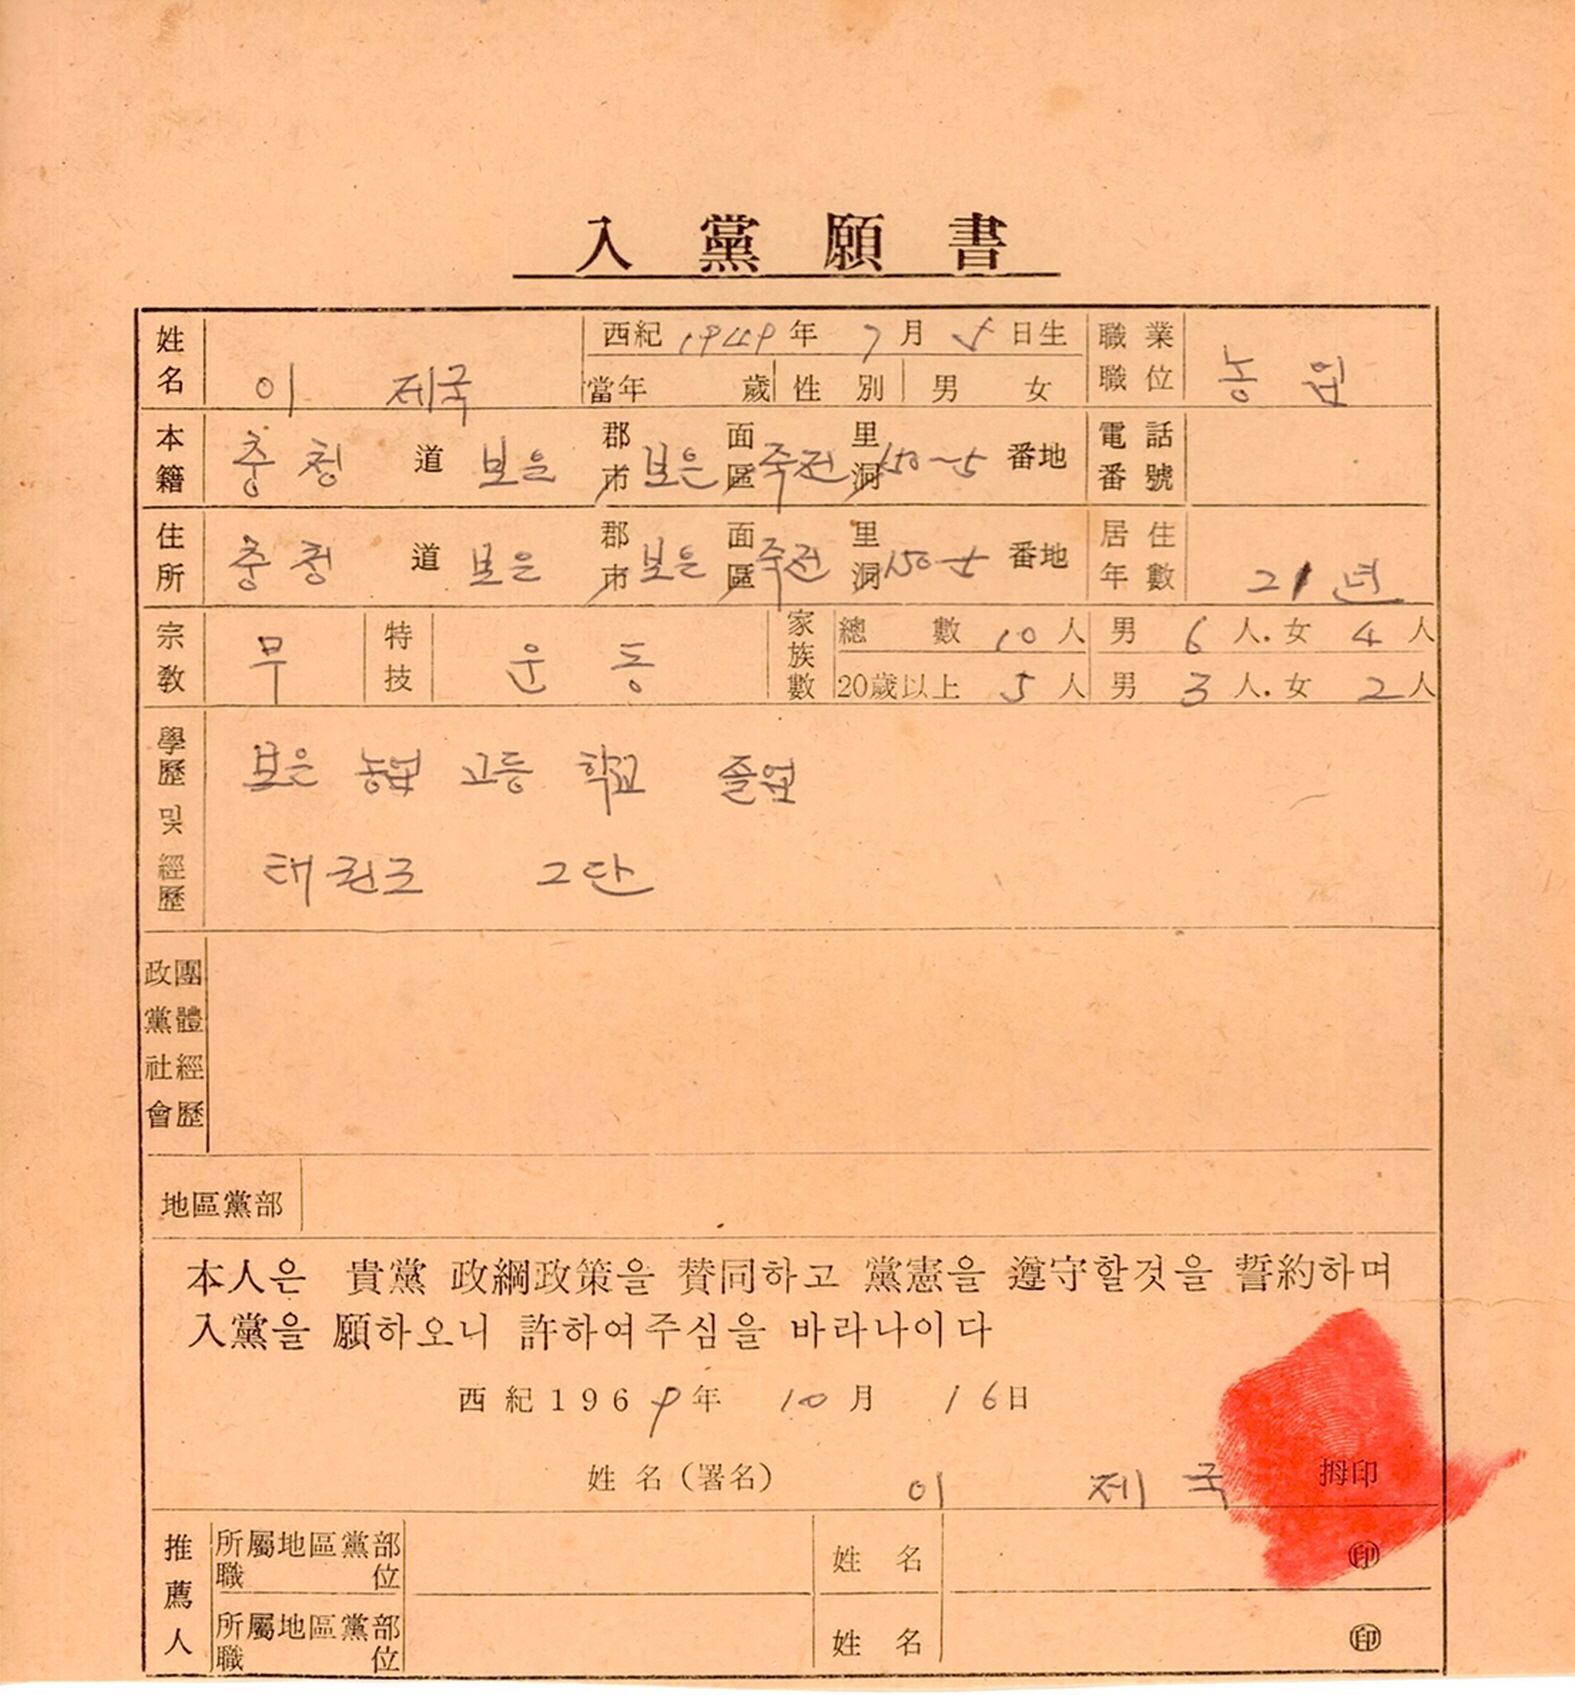 入黨願書
姓名 이 제국 西紀 1949 年 7 月 5 日生 職業 職位 농업
當年 歲 性別 男 女
本籍 충청 道 보은 郡 市 보은 面 區 죽전 里 洞 150~5 番地 電話番號
住所 충청 道 보은 郡 市 보은 面 區 죽전 里 洞 150-5 番地 居住年數 21년
宗敎 무 特技 운동 家族數 總數 10 人 男 6 人. 女 4 人
20歲以上 5 人 男 3 人. 女 2 人
學歷 및 經歷 보은 농업 고등 학교 졸업
태권도 2단
政黨社會 團體經歷
地區黨部
本人은 貴黨 政綱政策을 贊同하고 黨憲을 遵守할것을 誓約하며
入黨을 願하오니 許하여주심을 바라나이다
西紀 1969年 10月 16日
姓名(署名) 이 제국 拇印
推薦人 所屬地區黨部 職位 姓名 印
所屬地區黨部 職位 姓名 印